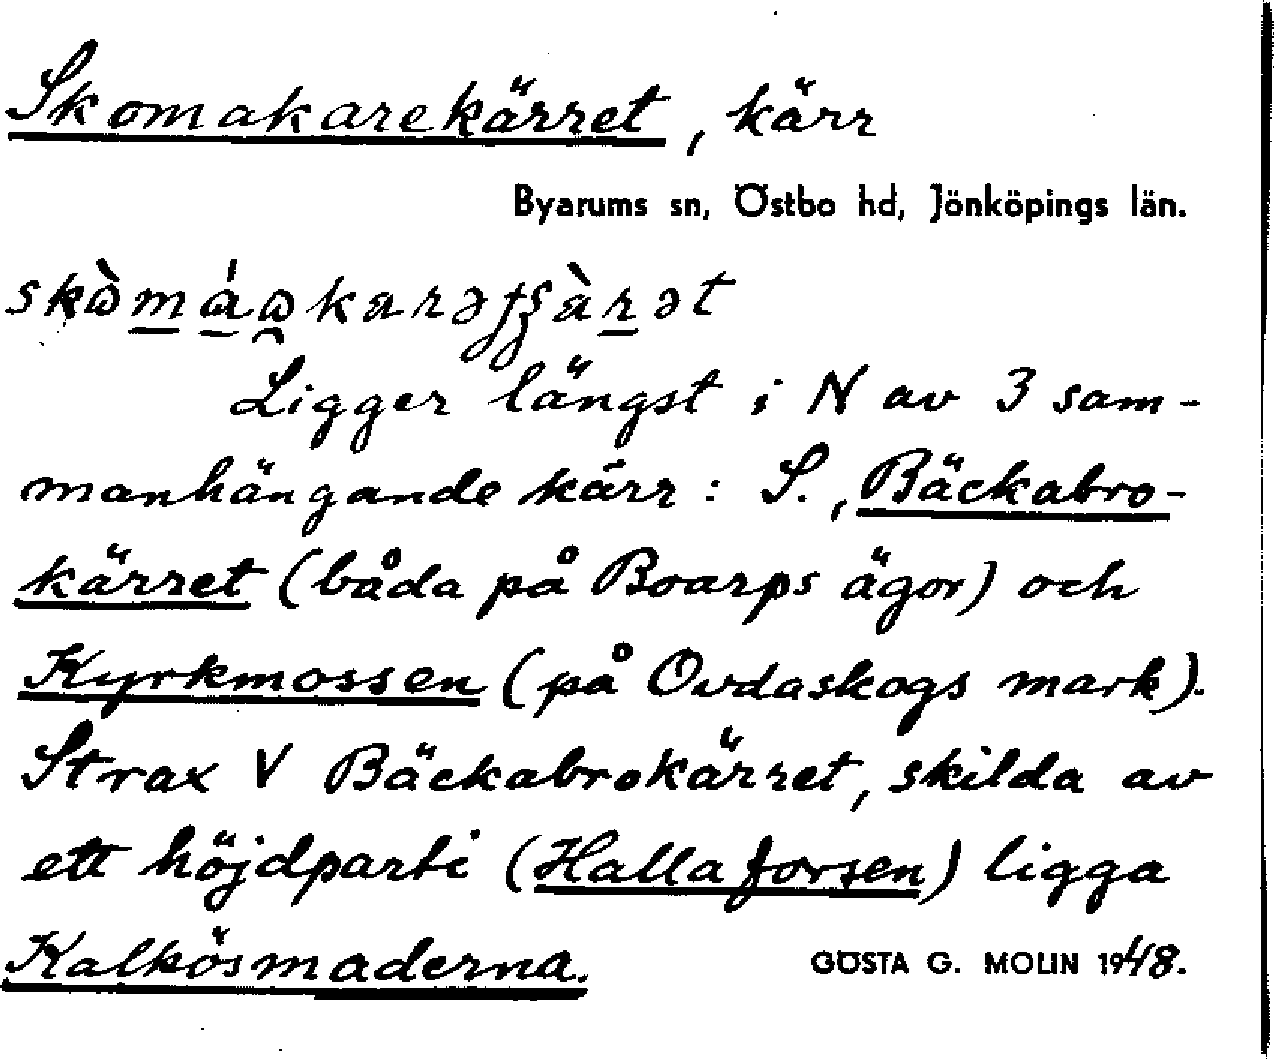 Skomakarekärret, kärr
Byarums sn, Östbo hd, Jönköpings län.
Ligger längst i N av 3 sam-
manhängande kärr: S., Bäckabro-
kärret (båda på Boarps ägor) och
Kyrkmossen (på Ovdaskogs mark).
Strax V Bäckabrokärret, skilda av
ett höjdparti (Hallaforsen) ligga
Kalkösmaderna.
GÖSTA G. MOLIN 1948.